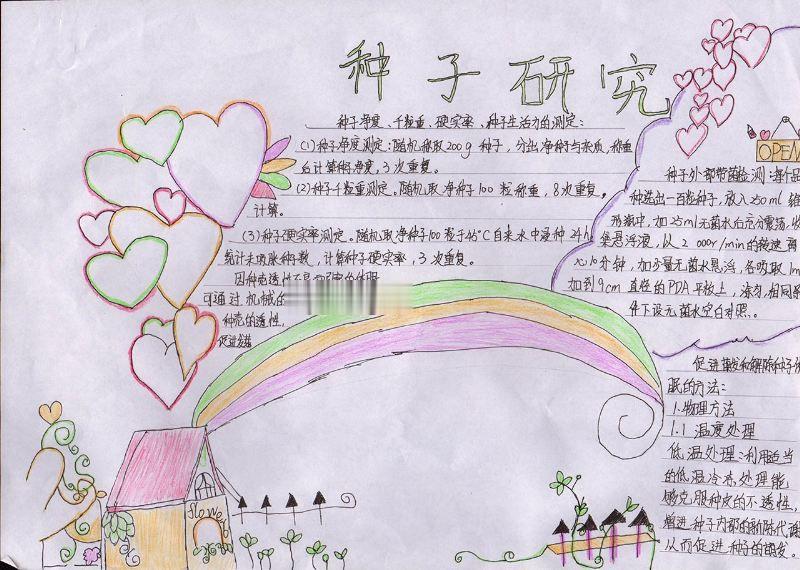 种子研究
种子净度、千粒重、硬实率、种子生活力的测定:
(1)种子净度测定:随机称取200g 种子,分出净种子与杂质,称重
后计算种子净度,3次重复。
(2)种子千粒重测定。随机取净种子100粒称重,8次重复。
计算。
(3)种子硬实率测定。随机取净种子100粒于45°C自来水中浸种24h
统计未吸胀种子数,计算种子硬实率,3次重复。
因种壳透性不良
可通过机械
种壳的透性,
促进发芽
OPEN
种子外部带菌检测:每个品
种选出一百粒种子,放入250ml 锥
形瓶中,加25ml无菌水白充分震荡,收
集悬浮液,以2000r/min的转速离
心10分钟,加少量无菌水悬浮,各吸取1m
加到9cm直径的PDA平板上,涂匀,相同条
件下设无菌水空白对照。。
促进萌发和解除种子休
眠的方法:
1.物理方法
1.1 温度处理
低温处理:利用适当
的低温冷冻处理能
够克服种皮的不透性,
增进种子内部的新陈代谢
从而促进种子的萌发。
flower